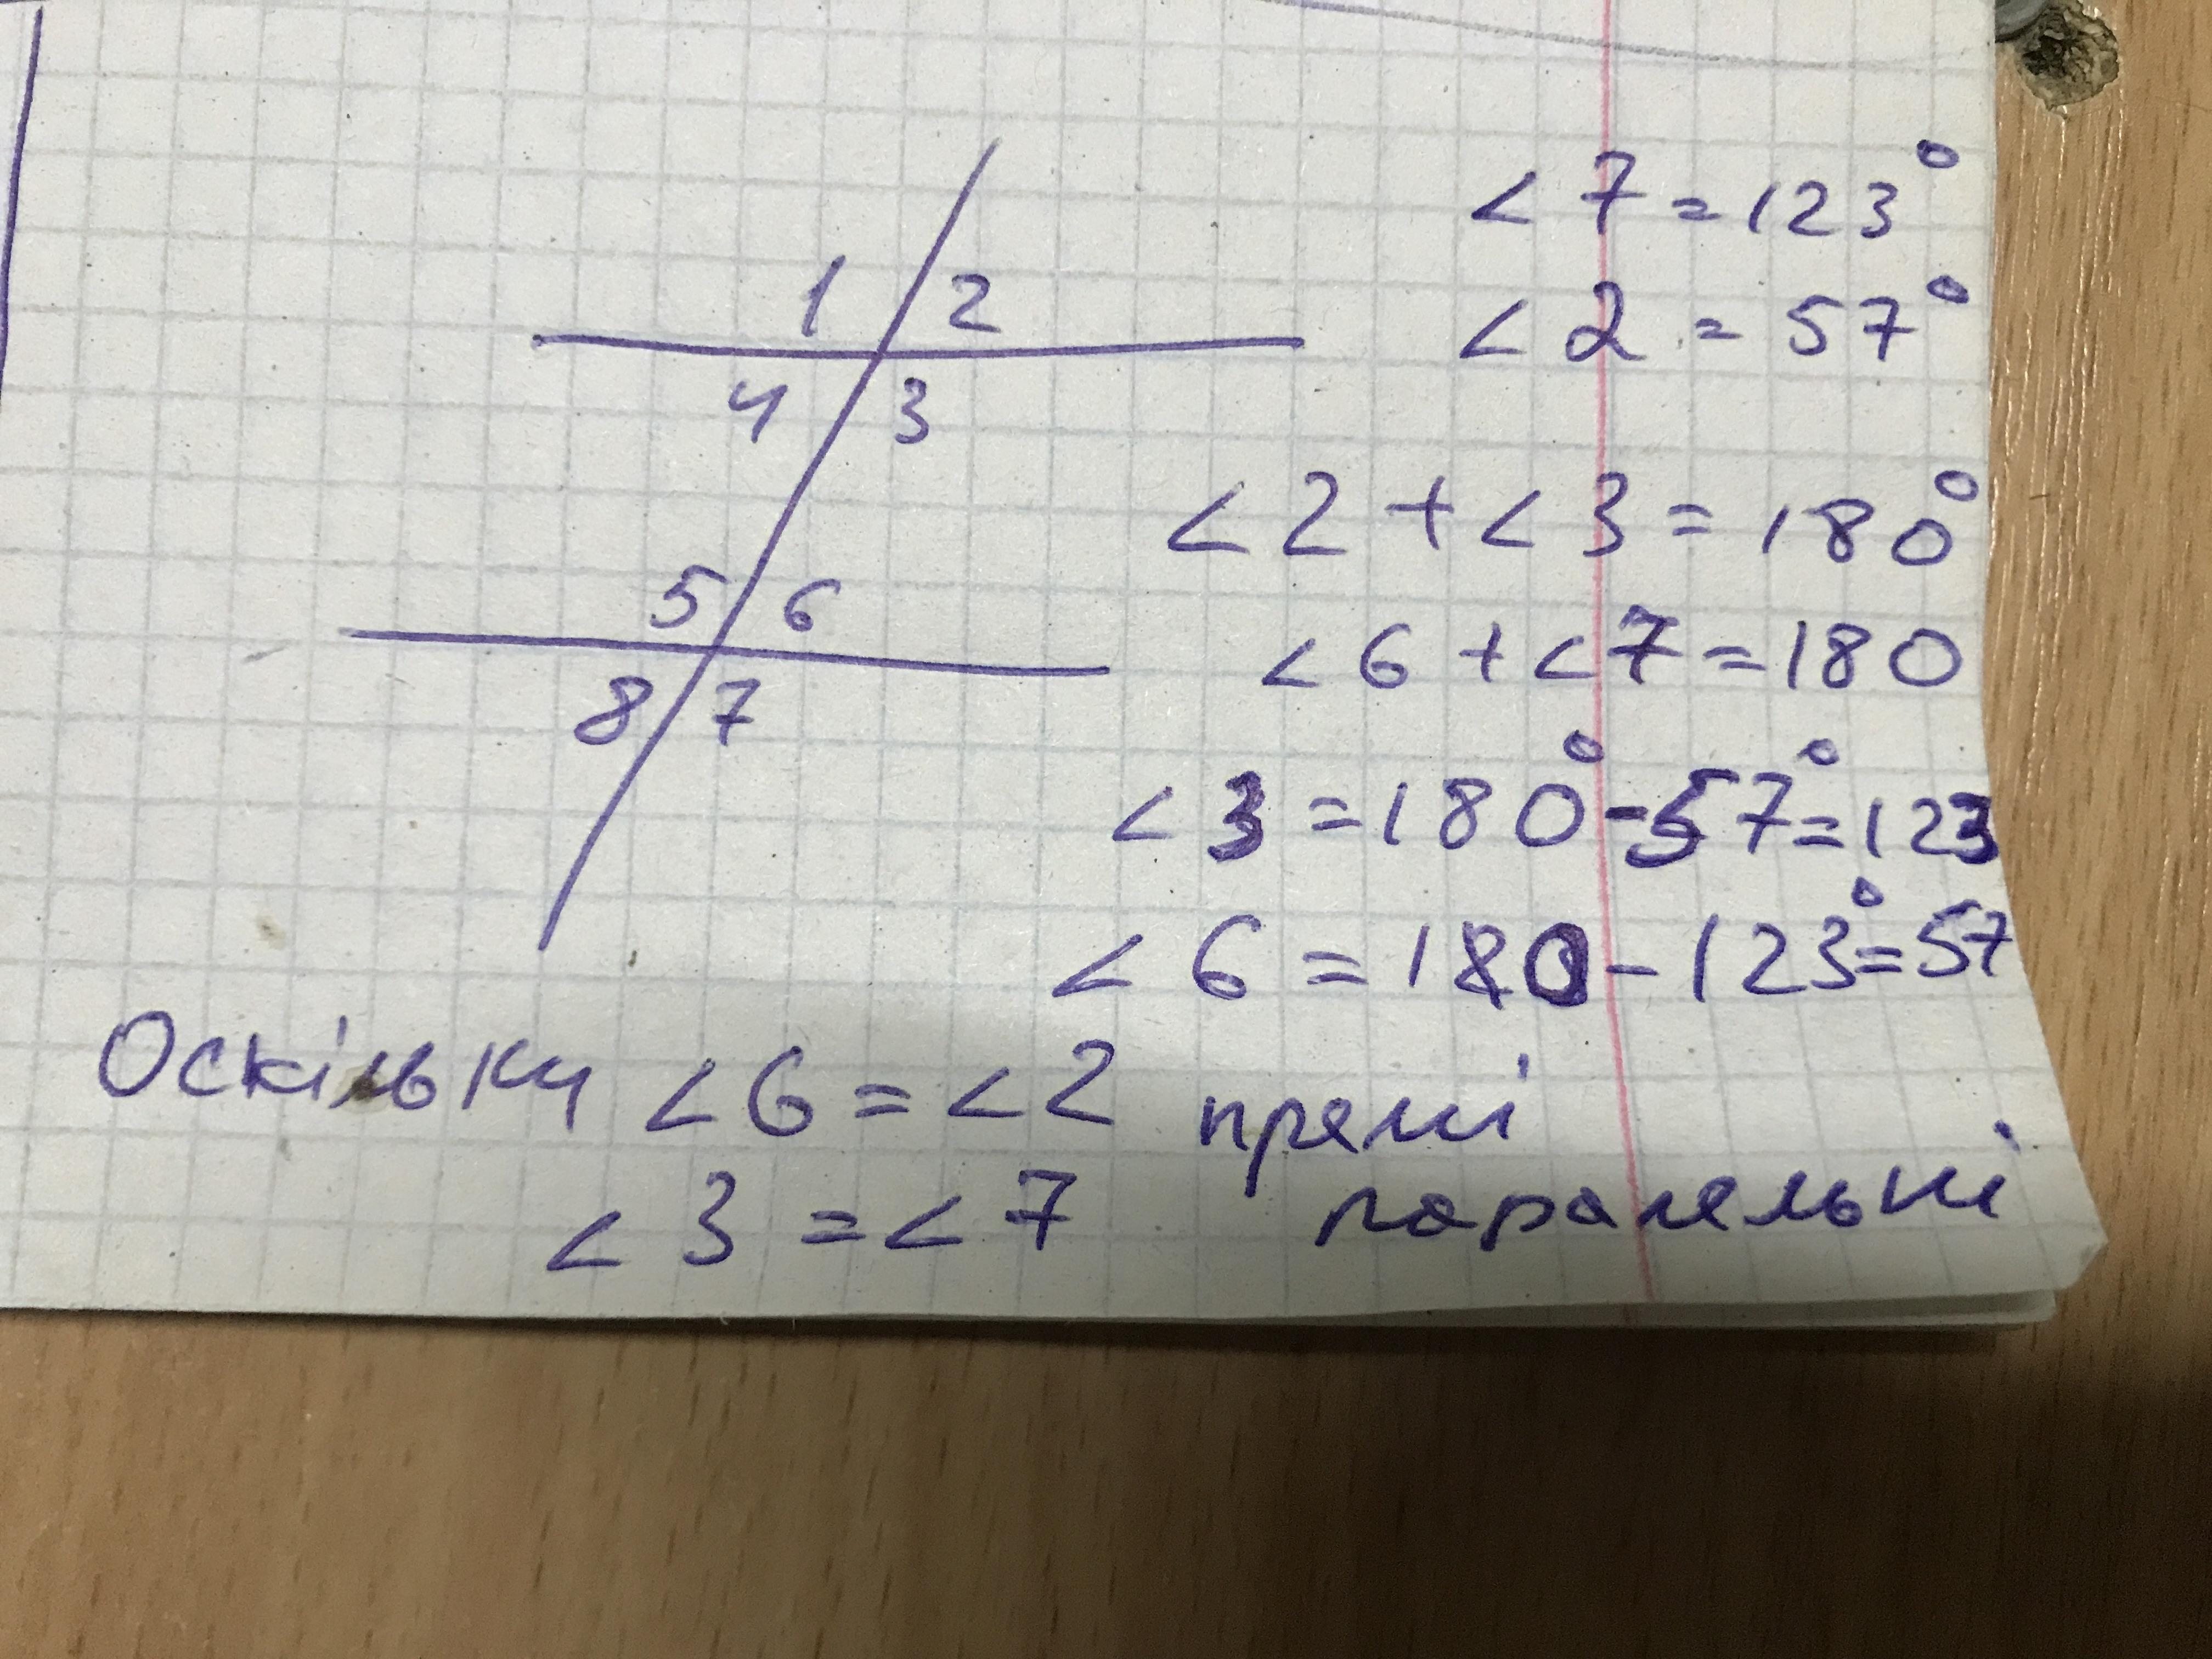 1 2
4 3
5 6
8 7
< 7 = 123°
< 2 = 57°
< 2 + < 3 = 180°
< 6 + < 7 = 180
< 3 = 180° - 57° = 123
< 6 = 180 - 123° = 57
Оскільки < 6 = < 2 прямі
< 3 = < 7 паралельні